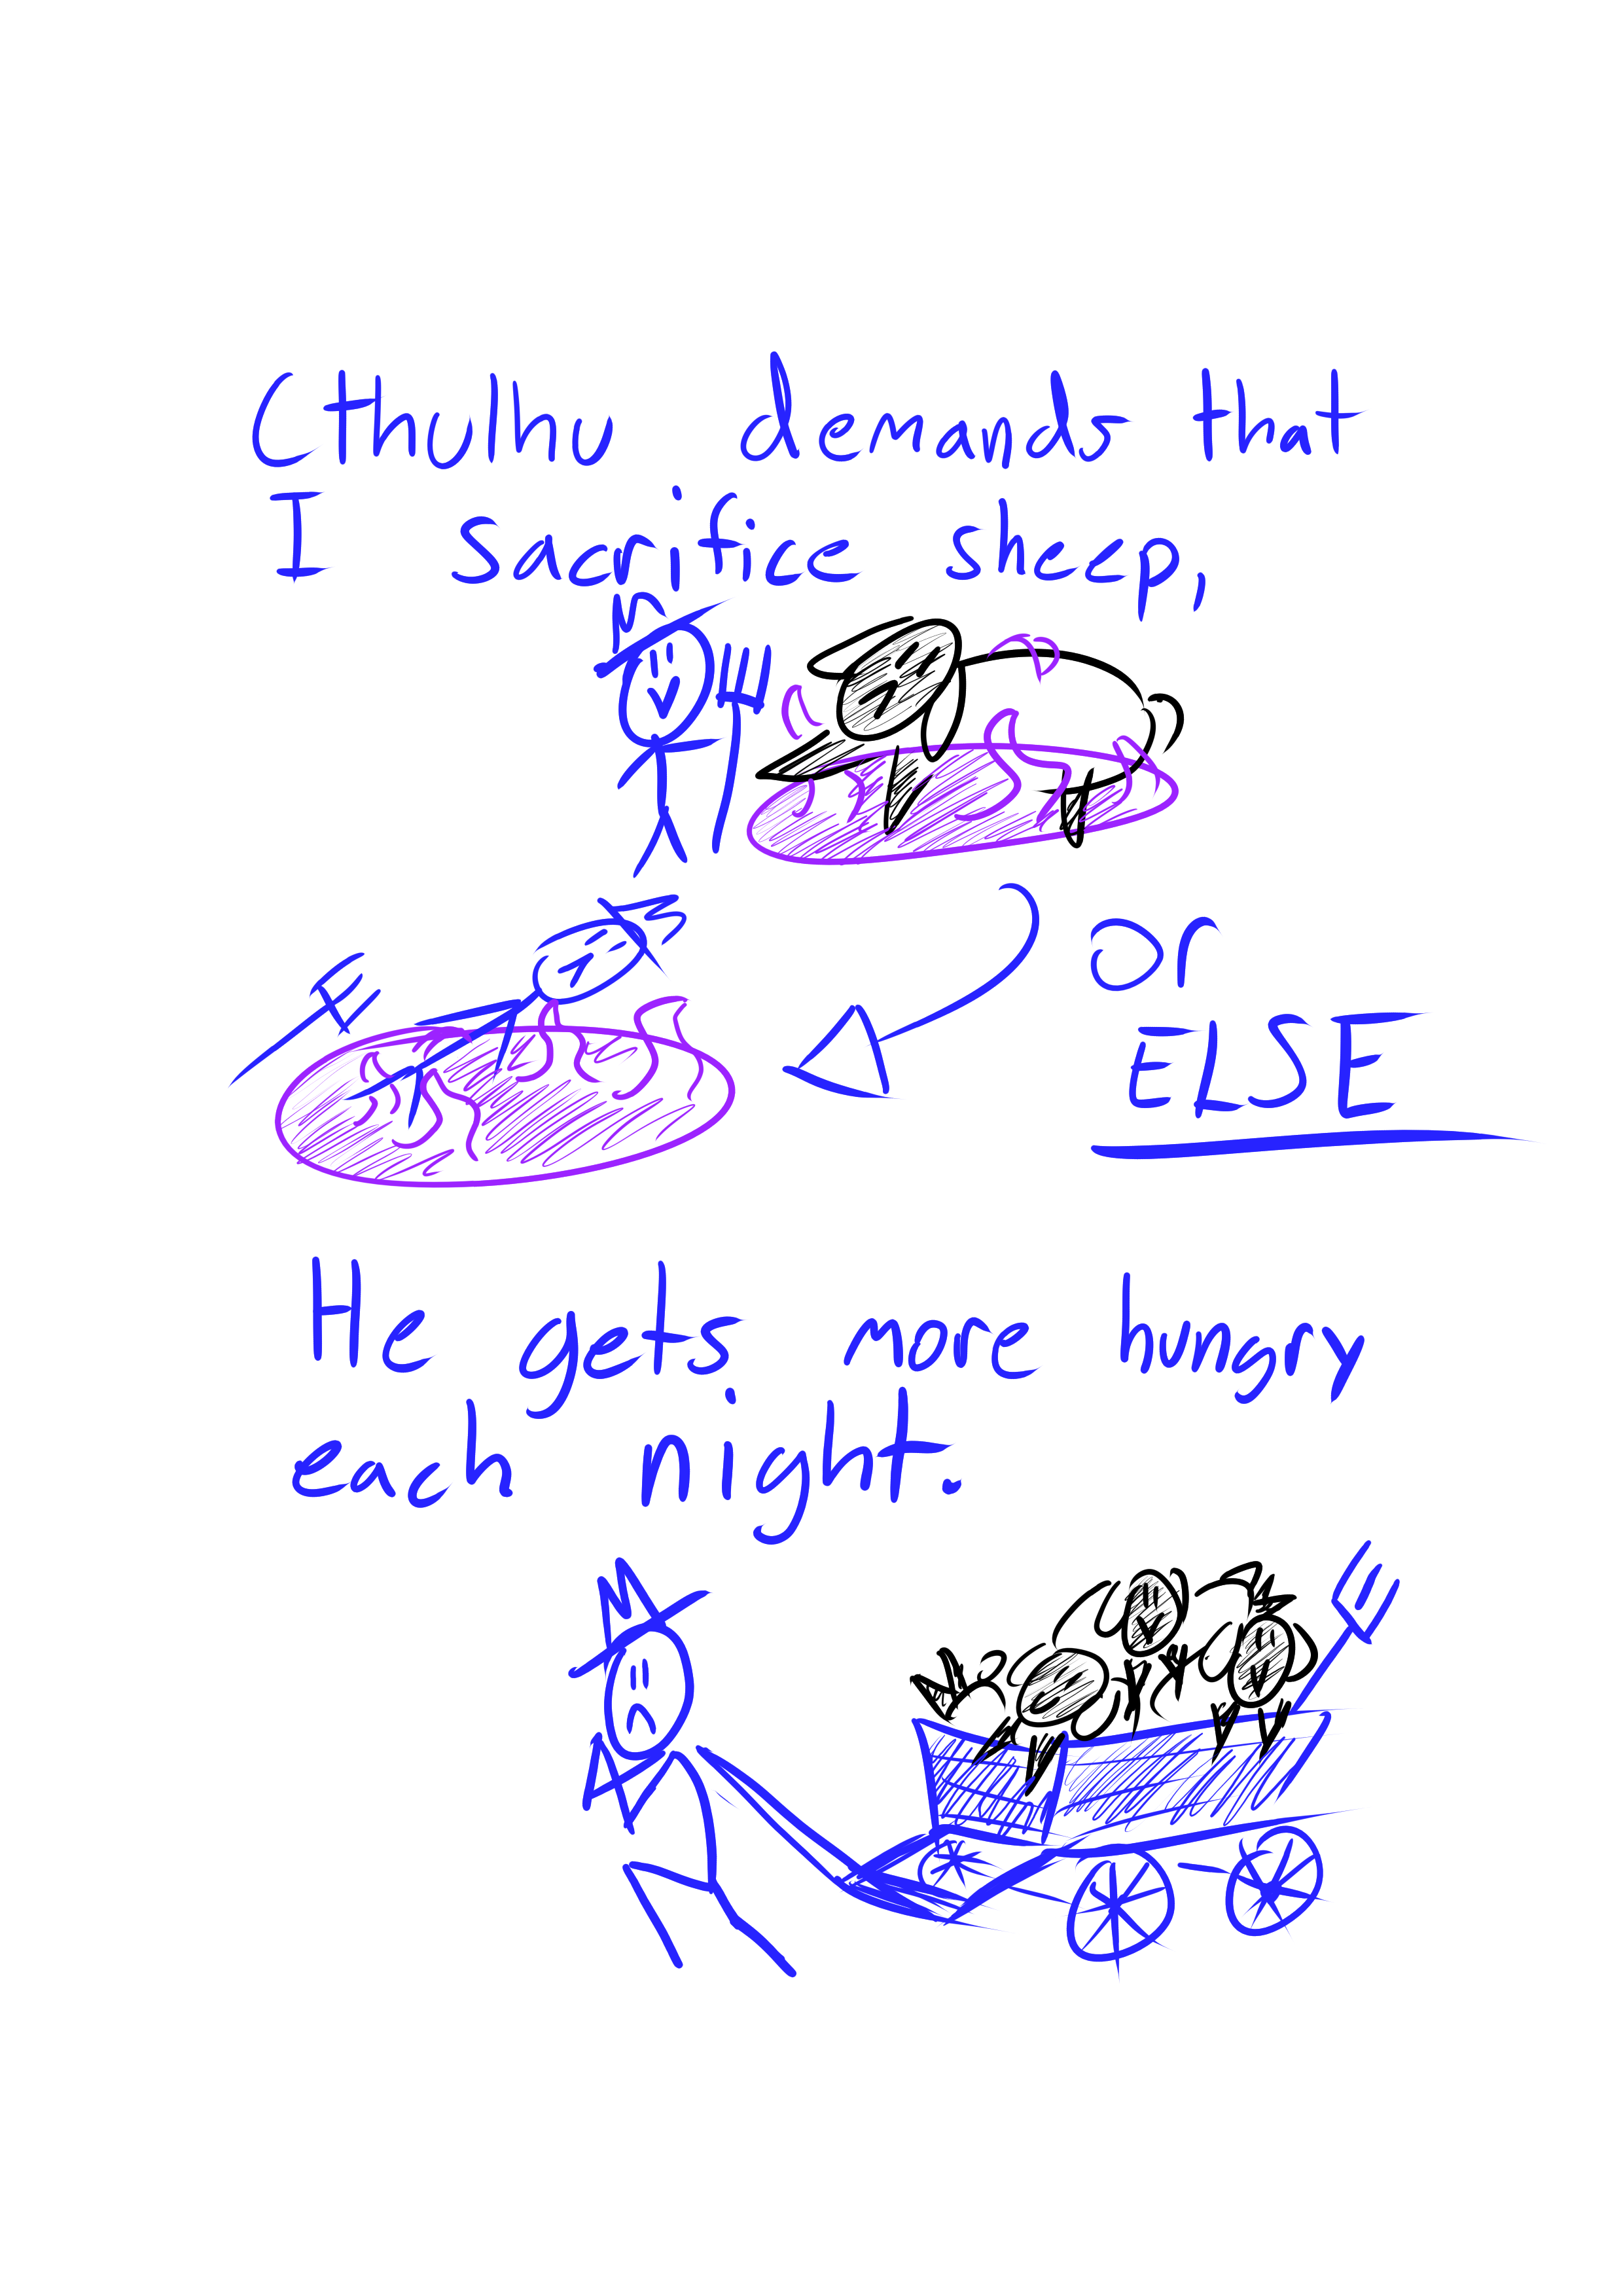 Cthulhu demands that
I sacrifice sheep,
or
ELSE
He gets more hungry
each night.